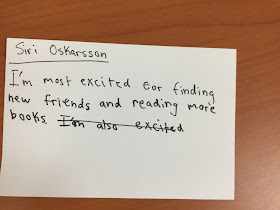 Siri Oskarsson
I'm most excited for finding
new friends and reading more
books. I'm also excited